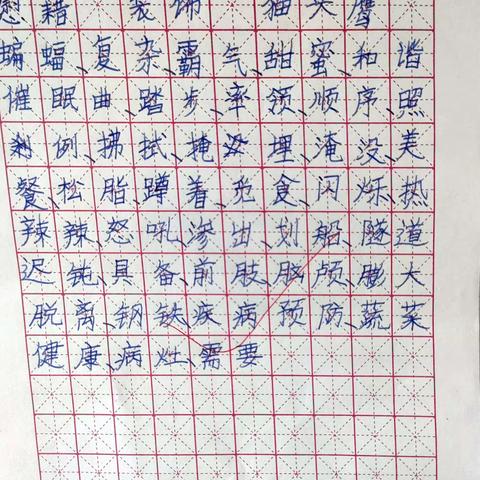 慰藉 装饰 猫头鹰
蝙蝠、复杂、霸气、甜蜜、和谐
催眠曲、踏步、率领、顺序、照
例、拂拭、掩埋、淹没、美
餐、松脂、蹲着、觅食、闪烁、热
辣辣、怒吼、渗出、划船、隧道
迟钝、具备、前肢、脑颅、膨大
脱离、钢铁、疾病、预防、蔬菜
健康、病灶、需要